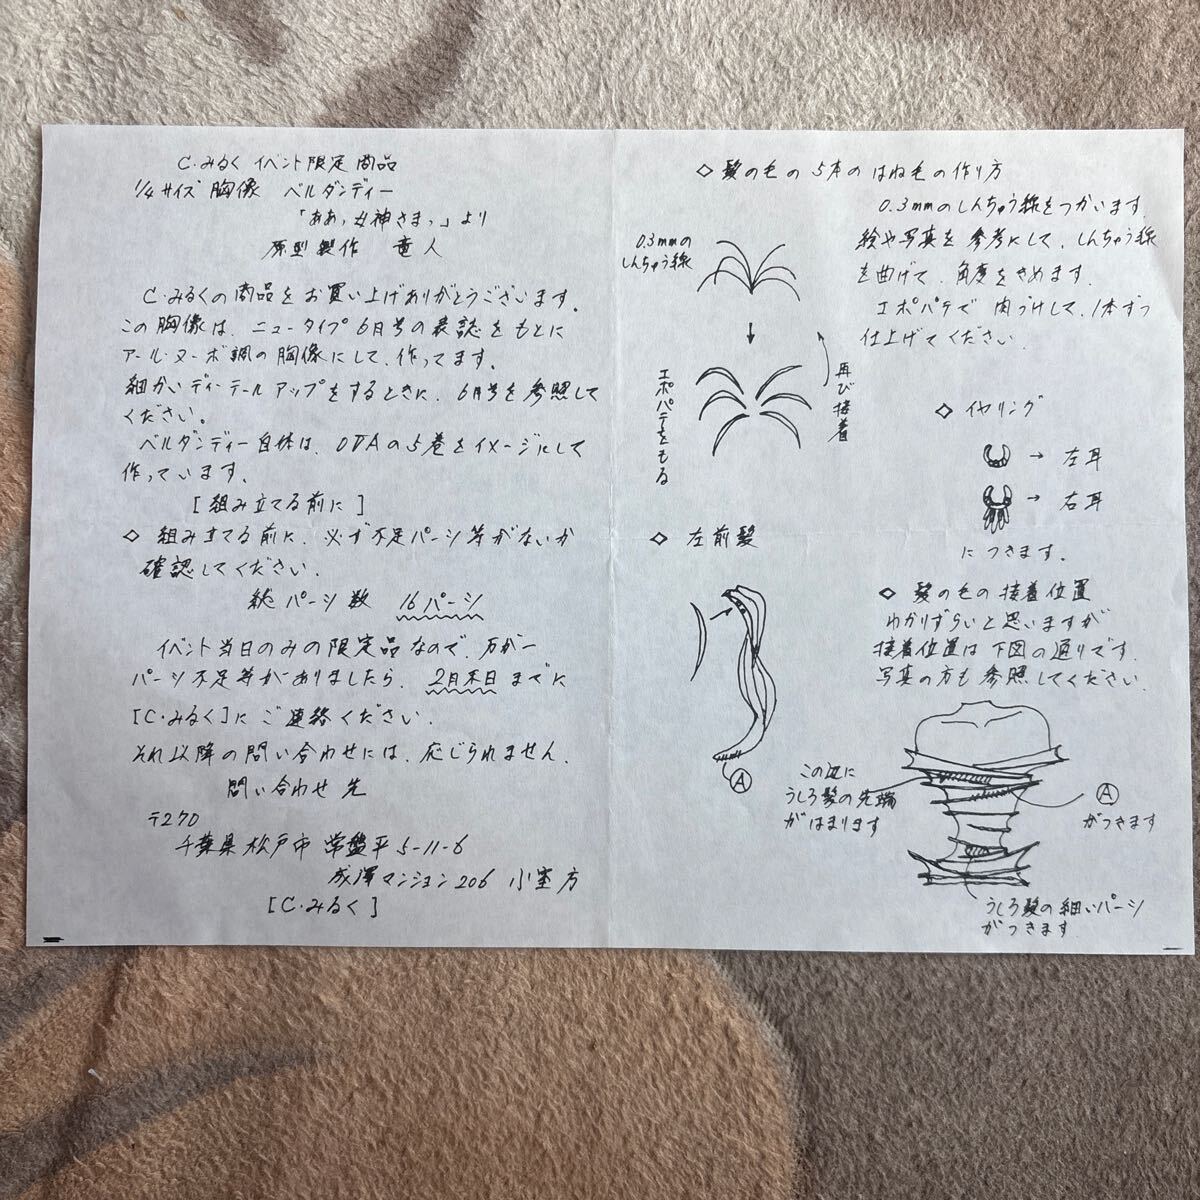 C・みるく イベント限定商品
1/4サイズ 胸像 ベルダンディー
「ああっ女神さまっ」より
原型製作 竜人
C・みるくの商品をお買い上げありがとうございます。
この胸像は、ニュータイプ6月号の表誌をもとに
アール・ヌーボ調の胸像にして、作ってます。
細かいディーテールアップをするときに、6月号を参照して
ください。
ベルダンディー自体は、OVAの5巻をイメージにして
作っています。
[組み立てる前に]
◇ 組み立てる前に、必ず不足パーツ等がないか
確認してください。
総パーツ数 16パーツ
イベント当日のみの限定品なので、万が一
パーツ不足等がありましたら、2月末日までに
[C・みるく]にご連絡ください。
それ以降の問い合わせには、応じられません。
問い合わせ先
〒270
千葉県松戸市常盤平5-11-6
成澤マンション206 小室方
[C・みるく]
◇ 髪の毛の5本のはね毛の作り方
0.3mmのしんちゅう線をつかいます。
絵や写真を参考にして、しんちゅう線
を曲げて、角度をきめます。
エポパテで肉づけして、1本ずつ
仕上げてください。
0.3mmの
しんちゅう線
エポパテをもる
再び接着
◇ イヤリング
→ 左耳
→ 右耳
につきます。
◇ 左前髪
Ⓐ
◇ 髪の毛の接着位置
わかりずらいと思いますが
接着位置は下図の通りです。
写真の方も参照してください。
この辺に
うしろ髪の先端
がはまります
Ⓐ
がつきます
うしろ髪の細いパーツ
がつきます